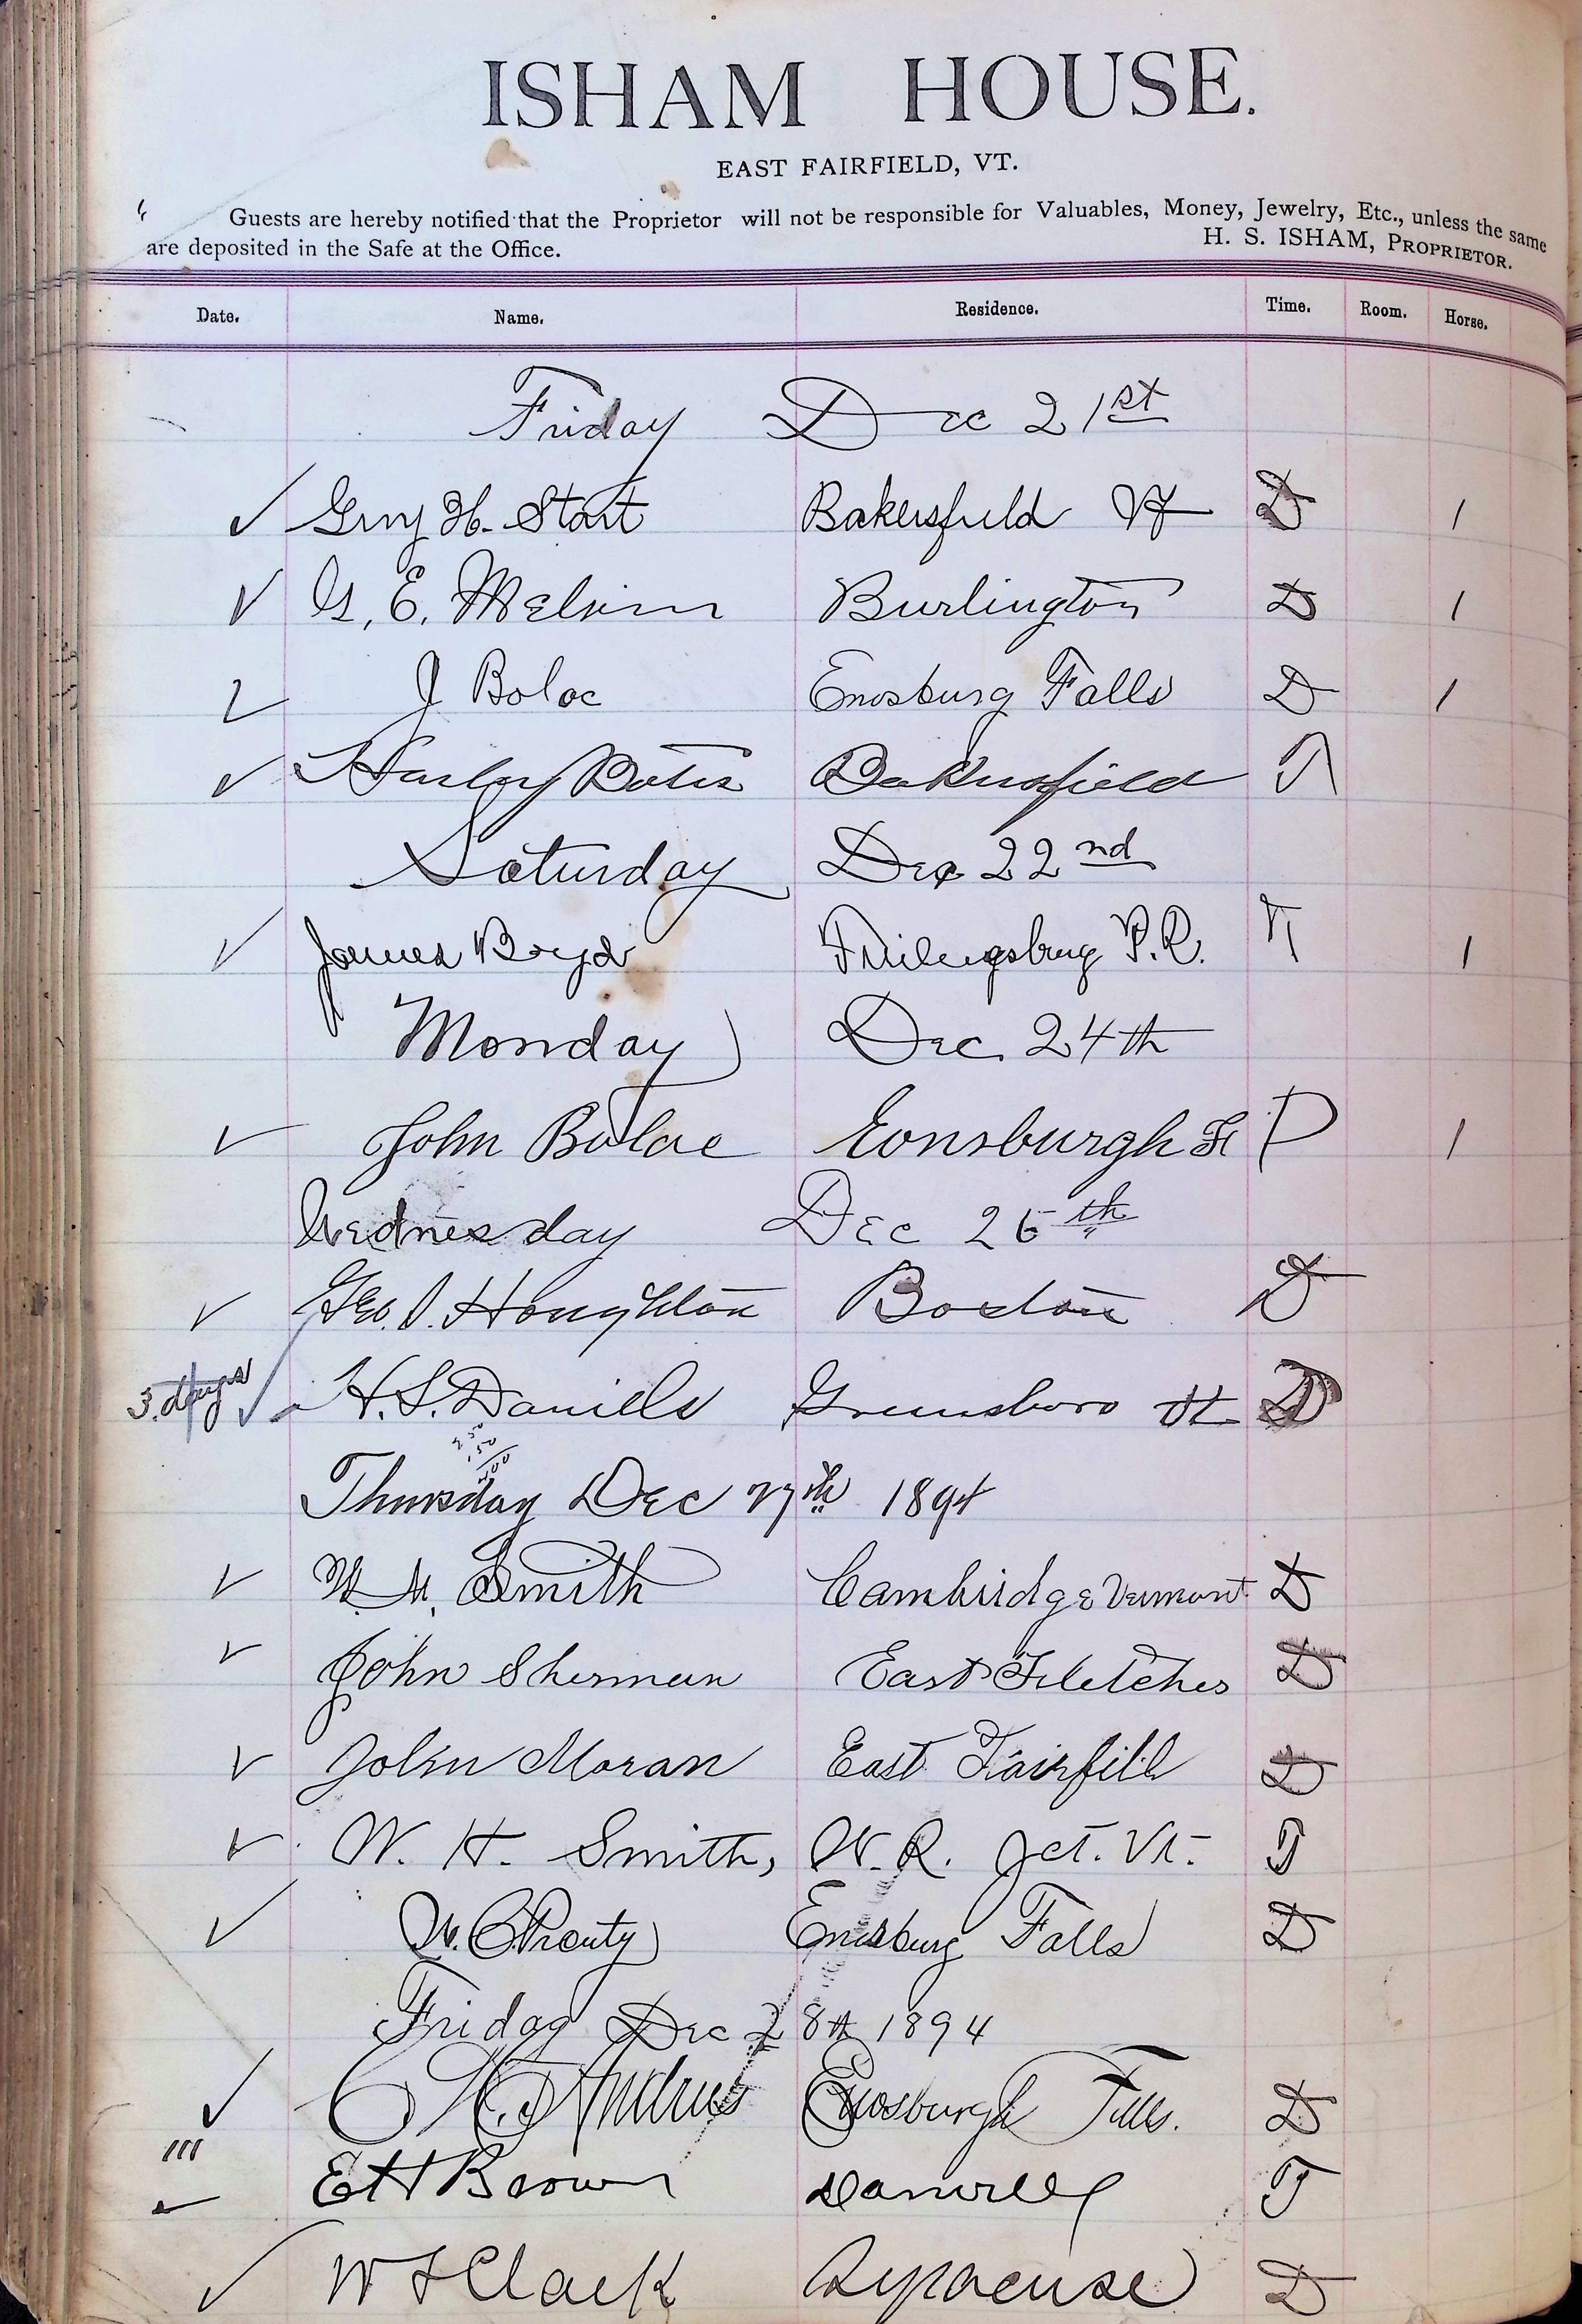 ISHAM HOUSE.
EAST FAIRFIELD, VT.
Guests are hereby notified that the Proprietor will not be responsible for Valuables, Money, Jewelry, Etc., unless the same
are deposited in the Safe at the Office. H. S. ISHAM, PROPRIETOR.
Date. Name. Residence. Time. Room. Horse.
Friday Dec 21st
✓ Guy H. Start Bakersfield Vt D 1
✓ G. E. Melvin Burlington D 1
✓ J Bolac Enosburg Falls D 1
✓ Harley Bakersfield T
Saturday Dec 22nd
✓ James Boyd P.Q. T 1
Monday Dec. 24th
✓ John Bolac Eonsburgh D 1
Wednesday Dec 26th
✓ Geo. Houghton Boston D
3. days ✓ H. S. Daniels Greensboro Vt D
Thursday Dec 27th 1894
✓ Smith Cambridge Vermont D
✓ John Sherman East Fletcher D
✓ John Moran East Fairfild D
✓ W. H. Smith, W. R. Jct. Vt. T
✓ W. C. Prouty Enosburg Falls D
Friday Dec 28th 1894
✓ Andrus Enosburgh Falls. D
✓ E H Brown Danville T
✓ W Clark Syracuse D